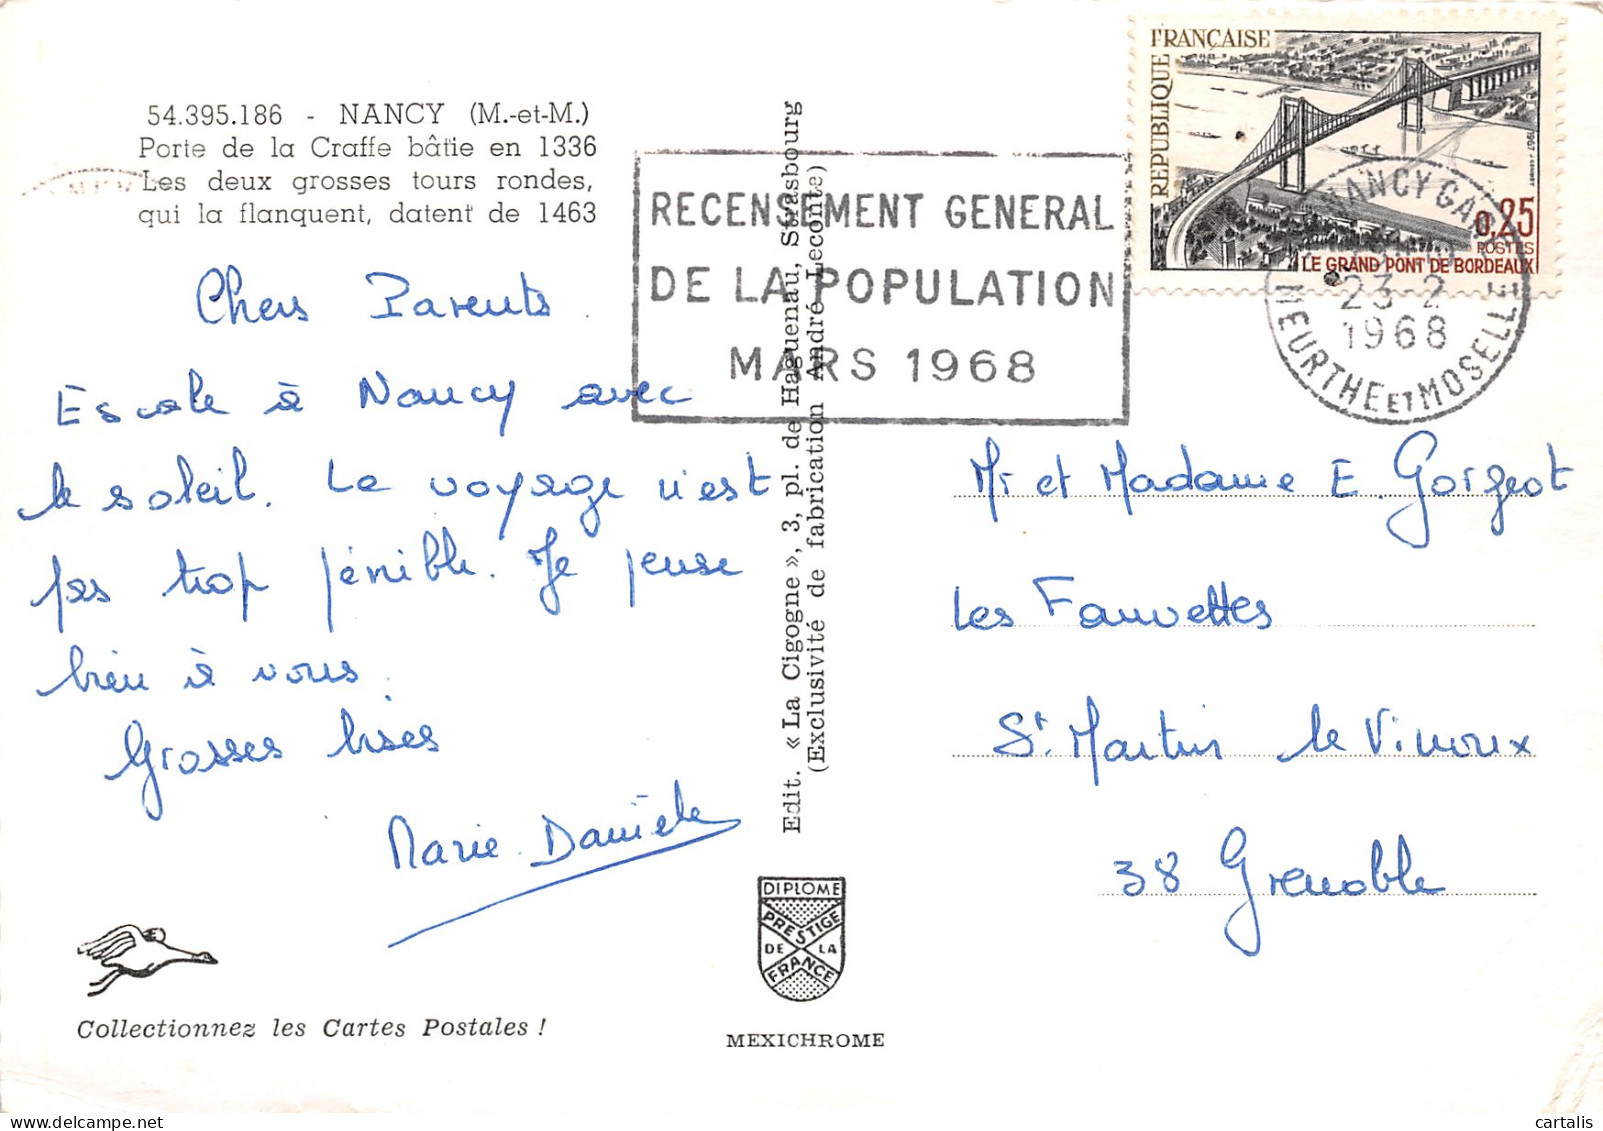 54.395.186 - NANCY (M.-et-M.)
Porte de la Craffe bâtie en 1336
Les deux grosses tours rondes,
qui la flanquent, datent de 1463
Chers Parents.
Escale à Nancy avec
le soleil. Le voyage n'est
pas trop pénible. Je pense
bien à vous.
Grosses bises
Marie Danièle
Collectionnez les Cartes Postales !
Edit. « La Cigogne », 3, pl. de Haguenau, Strasbourg
(Exclusivité de fabrication André Leconte)
DIPLOME
PRESTIGE
DE LA
FRANCE
MEXICHROME
RECENSEMENT GENERAL
DE LA POPULATION
MARS 1968
REPUBLIQUE FRANÇAISE
0,25
POSTES
LE GRAND PONT DE BORDEAUX
NANCY GARE
23-2
1968
MEURTHE ET MOSELLE
Mr et Madame E. Gorgeot
Les Fauvettes
St. Martin le Vinoux
38 Grenoble
cartalis
delcampe.net